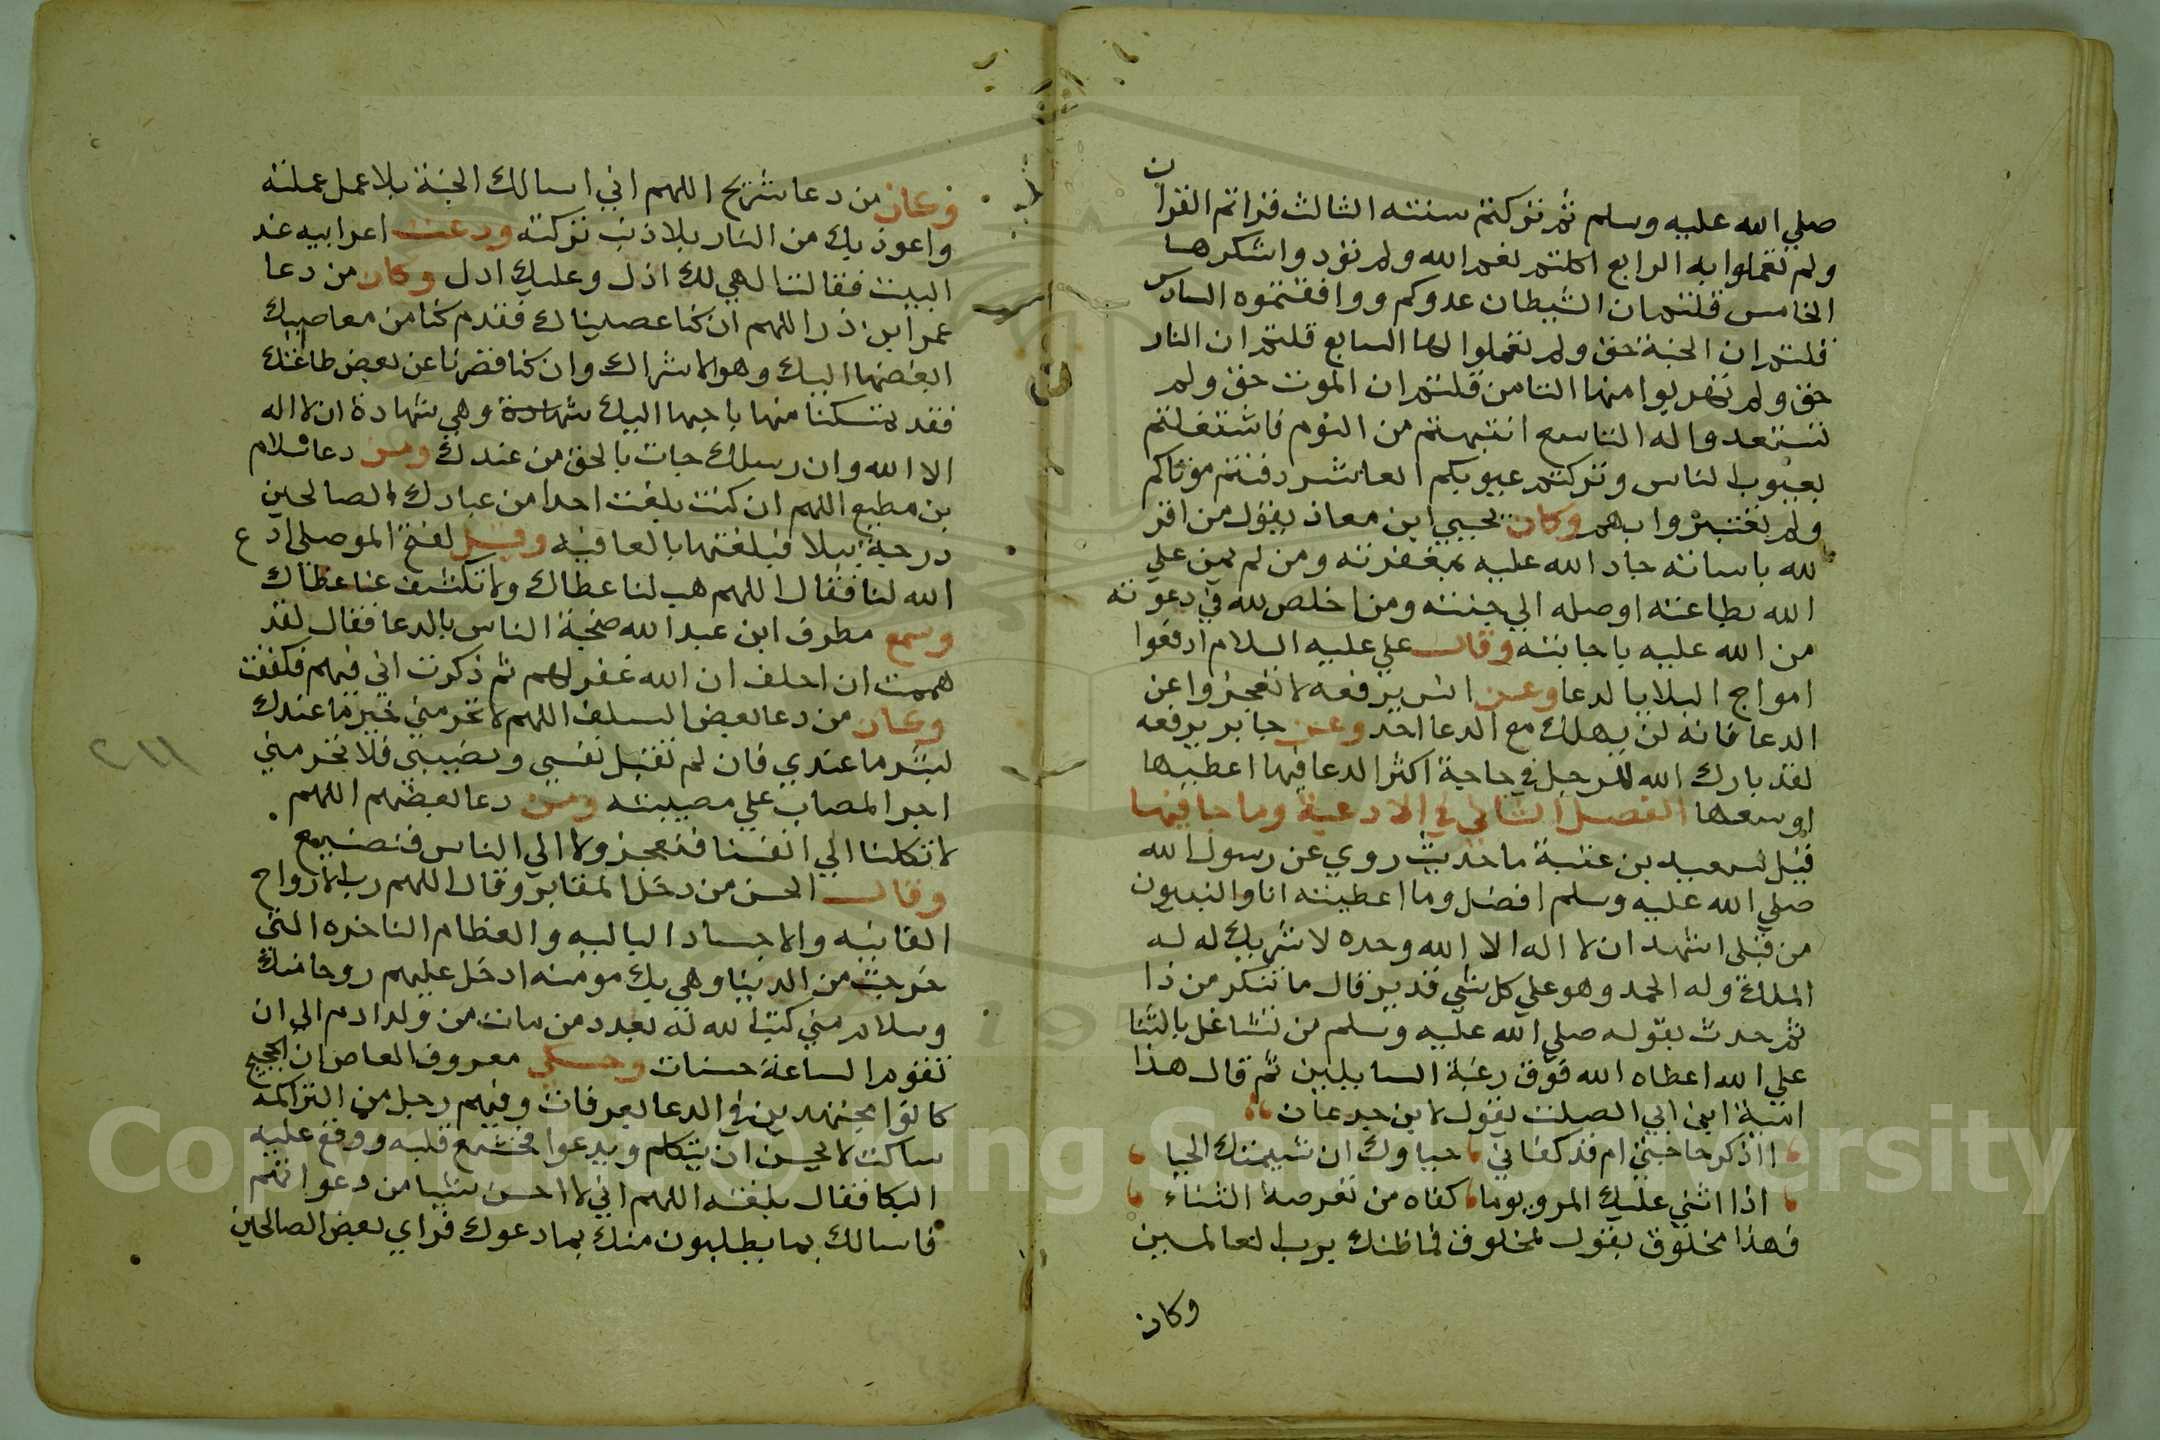 صلي الله عليه وسلم ثم تركتم سنته الثالث قراتم القران
ولم تعملوا به الرابع اكلتم نعم الله ولم تؤدوا شكرها
الخامس قلتم ان الشيطان عدوكم ووافقتموه السادس
قلتم ان الجنة حق ولم تعملوا لها السابع قلتم ان النار
حق ولم تهربوا منها الثامن قلتم ان الموت حق ولم
تستعدوا له التاسع انتبهتم من النوم فاشتغلتم
بعيوب الناس وتركتم عيوبكم العاشر دفنتم موتاكم
ولم تعتبروا بهم وكان يحيي ابن معاذ يقول من اقر
لله باساته جاد الله عليه بمغفرته ومن لم يمن علي
الله بطاعته اوصله الي جنته ومن اخلص لله في دعوته
من الله عليه باجابته وقال علي عليه السلام ادفعوا
امواج البلا بالدعا وعن انس يرفعه لا تعجزوا عن
الدعا فانه لن يهلك مع الدعا احد وعن جابر يرفعه
لقد بارك الله للرجل في حاجة اكثر الدعا فيها اعطيها
او منعها الفصل الثاني في الادعية وما جا فيها
قيل لسعيد بن عتبة ما حديث روي عن رسول الله
صلي الله عليه وسلم افضل وما اعطيته انا والنبيون
من قبلي اشهد ان لا اله الا الله وحده لا شريك له له
الملك وله الحمد وهو علي كل شي قدير قال ما تنكر من ذا
ثم حدث بقوله صلي الله عليه وسلم من تشاغل بالثنا
علي الله اعطاه الله فوق رغبة السايلين ثم قال هذا
امية ابن ابي الصلت يقول لابن جدعان
ااذكر حاجتي ام قد كفاني حياوك ان شيمتك الحيا
اذا اثني عليك المرو يوما كفاه من تعرضه الثناء
فهذا مخلوق يقول لمخلوق فما ظنك برب العالمين
وكان
وكان من دعا شريح اللهم اني اسالك الجنة بلا عمل عملته
واعوذ بك من النار بلا ذنب تركته ودعت اعرابيه عند
البيت فقالت الهي لك اذل وعليك ادل وكان من دعا
عمر ابن ذر اللهم ان كنا عصيناك فقد م كنا من معاصيك
ابغضها اليك وهو الاشراك وان كنا قصرنا عن بعض طاعتك
فقد تمسكنا منها باحبها اليك شهادة وهي شهادة ان لا اله
الا الله وان رسلك جات بالحق من عندك ومن دعا سلام
بن مطيع اللهم ان كنت بلغت احدا من عبادك الصالحين
درجة ببلا فبلغتها بالعافيه وقيل لفتح الموصلي ادع
الله لنا فقال اللهم هب لنا عطاك ولا تكشف عنا غطاك
وسمع مطرف ابن عبد الله ضجة الناس بالدعا فقال لقد
هممت ان احلف ان الله غفر لهم ثم ذكرت اني فيهم فكففت
وكان من دعا بعض السلف اللهم لا تحرمني خير ما عندك
لشر ما عندي فان لم تقبل تعبي ونصبي فلا تحرمني
اجر المصاب علي مصيبته ومن دعا بعضهم اللهم
لا تكلنا الي انفسنا فنعجز ولا الي الناس فنضيع
وقال الحسن من دخل المقابر وقال اللهم رب الارواح
الفانيه والاجساد الباليه والعظام الناخره التي
خرجت من الدنيا وهي بك مومنه ادخل عليهم روحا منك
وسلام مني كتب الله له بعدد من مات من ولد ادم الي ان
تقوم الساعة حسنات وحكي معروف العاص ان الحجيج
كانوا مجتهدين في الدعا بعرفات وفيهم رجل من التراكمه
ساكت لا يحسن ان يتكلم ويدعوا فخشع قلبه ووقع عليه
البكا فقال بلغته اللهم اني لا احسن شيا من دعواتهم
فاسالك بما يطلبون منك بما دعوك فراي بعض الصالحين
Copyright © King Saud University